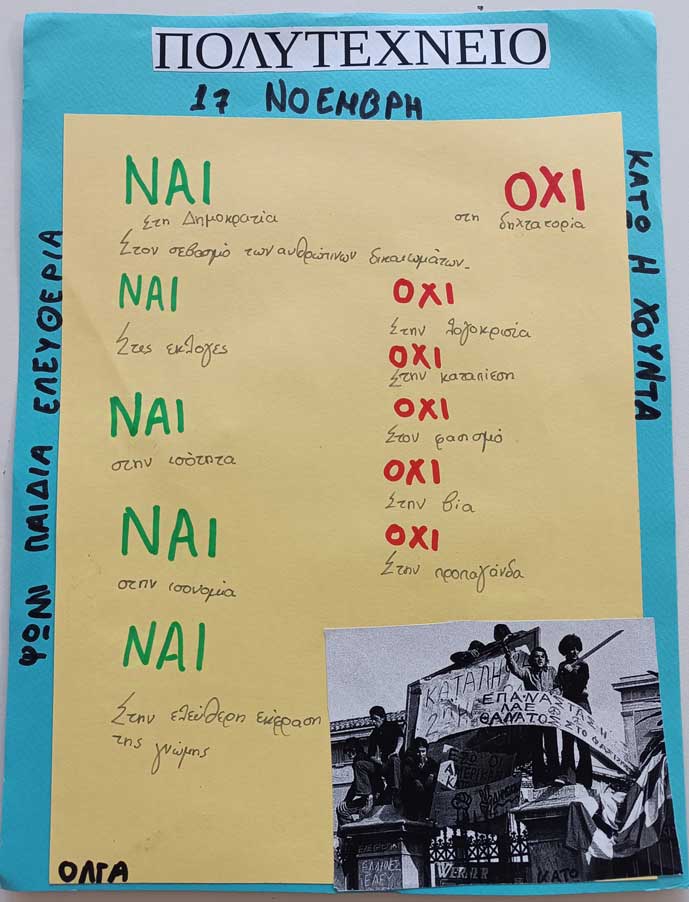 ΠΟΛΥΤΕΧΝΕΙΟ
17 ΝΟΕΜΒΡΗ
ΝΑΙ
Στη Δημοκρατία
Στον σεβασμό των ανθρώπινων δικαιωμάτων
ΝΑΙ
Στες εκλογες
ΝΑΙ
στην ισότητα
ΝΑΙ
στην ισονομία
ΝΑΙ
Στην ελεύθερη έκφραση
της γνώμης
ΟΧΙ
στη δηχτατορία
ΟΧΙ
Στην λογοκρισία
ΟΧΙ
Στην καταπίεση
ΟΧΙ
Στον ρασισμό
ΟΧΙ
Στην βία
ΟΧΙ
Στην προπαγάνδα
ΨΩΜΙ ΠΑΙΔΙΑ ΕΛΕΥΘΕΡΙΑ
ΚΑΤΩ Η ΧΟΥΝΤΑ
ΟΛΓΑ
ΚΑΤΑΛΗ
ΕΠΑΝΑΣΤΑΣΗ
ΛΑΕ
ΘΑΝΑΤΟΣ ΣΤΟ
ΕΞΩ ΟΙ
ΕΛΛΗΝΕΣ
ΚΑΤΩ